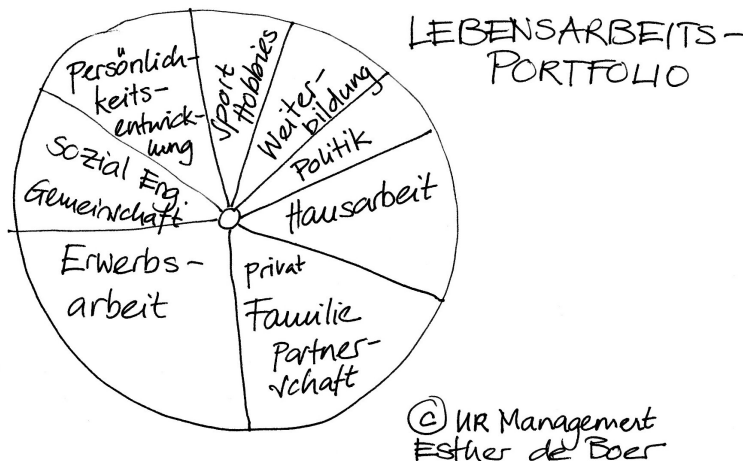 LEBENSARBEITS-
PORTFOLIO
Persönlich-
keits-
entwick-
lung
Sport
Hobbies
Weiter-
bildung
Politik
Hausarbeit
privat
Familie
Partner-
schaft
Erwerbs-
arbeit
Sozial Eng.
Gemeinschaft
© HR Management
Esther de Boer